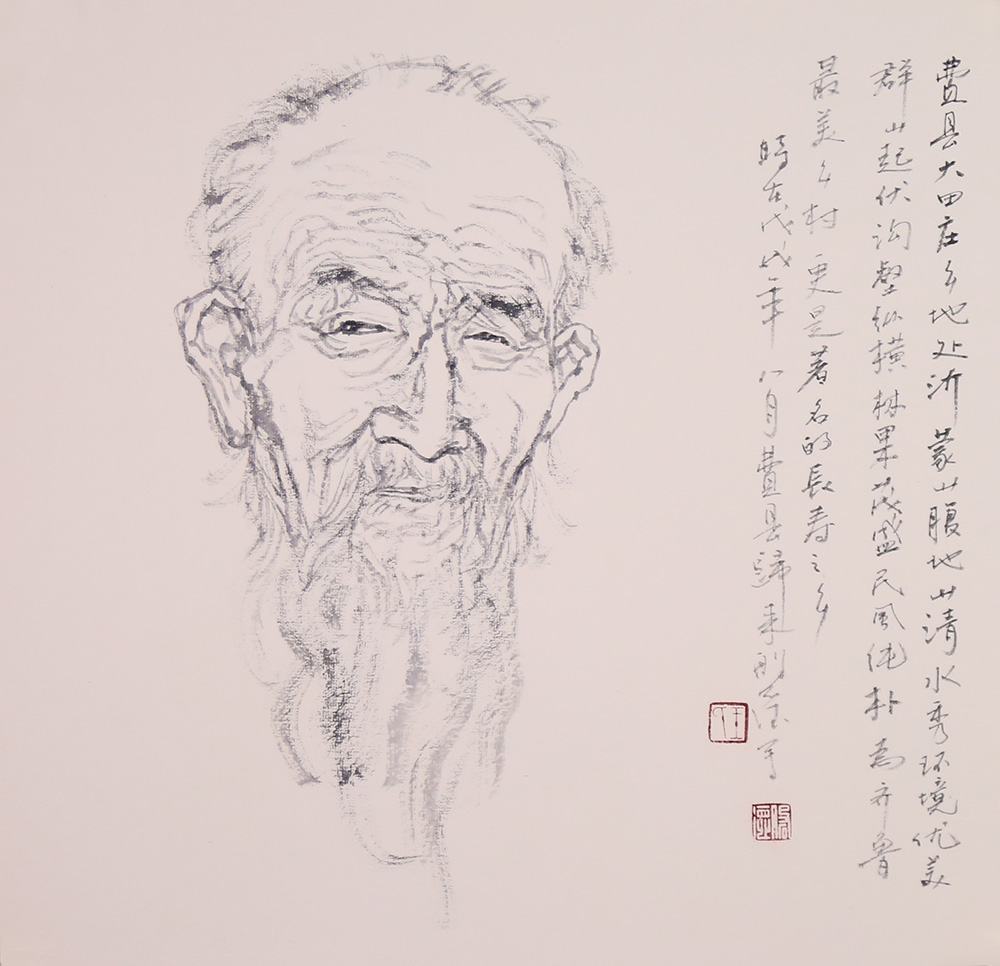 费县大田庄乡地处沂蒙山腹地山清水秀环境优美
群山起伏沟壑纵横林果茂盛民风纯朴为齐鲁
最美乡村更是著名的長寿之乡
時在戊戌年八月费县歸来